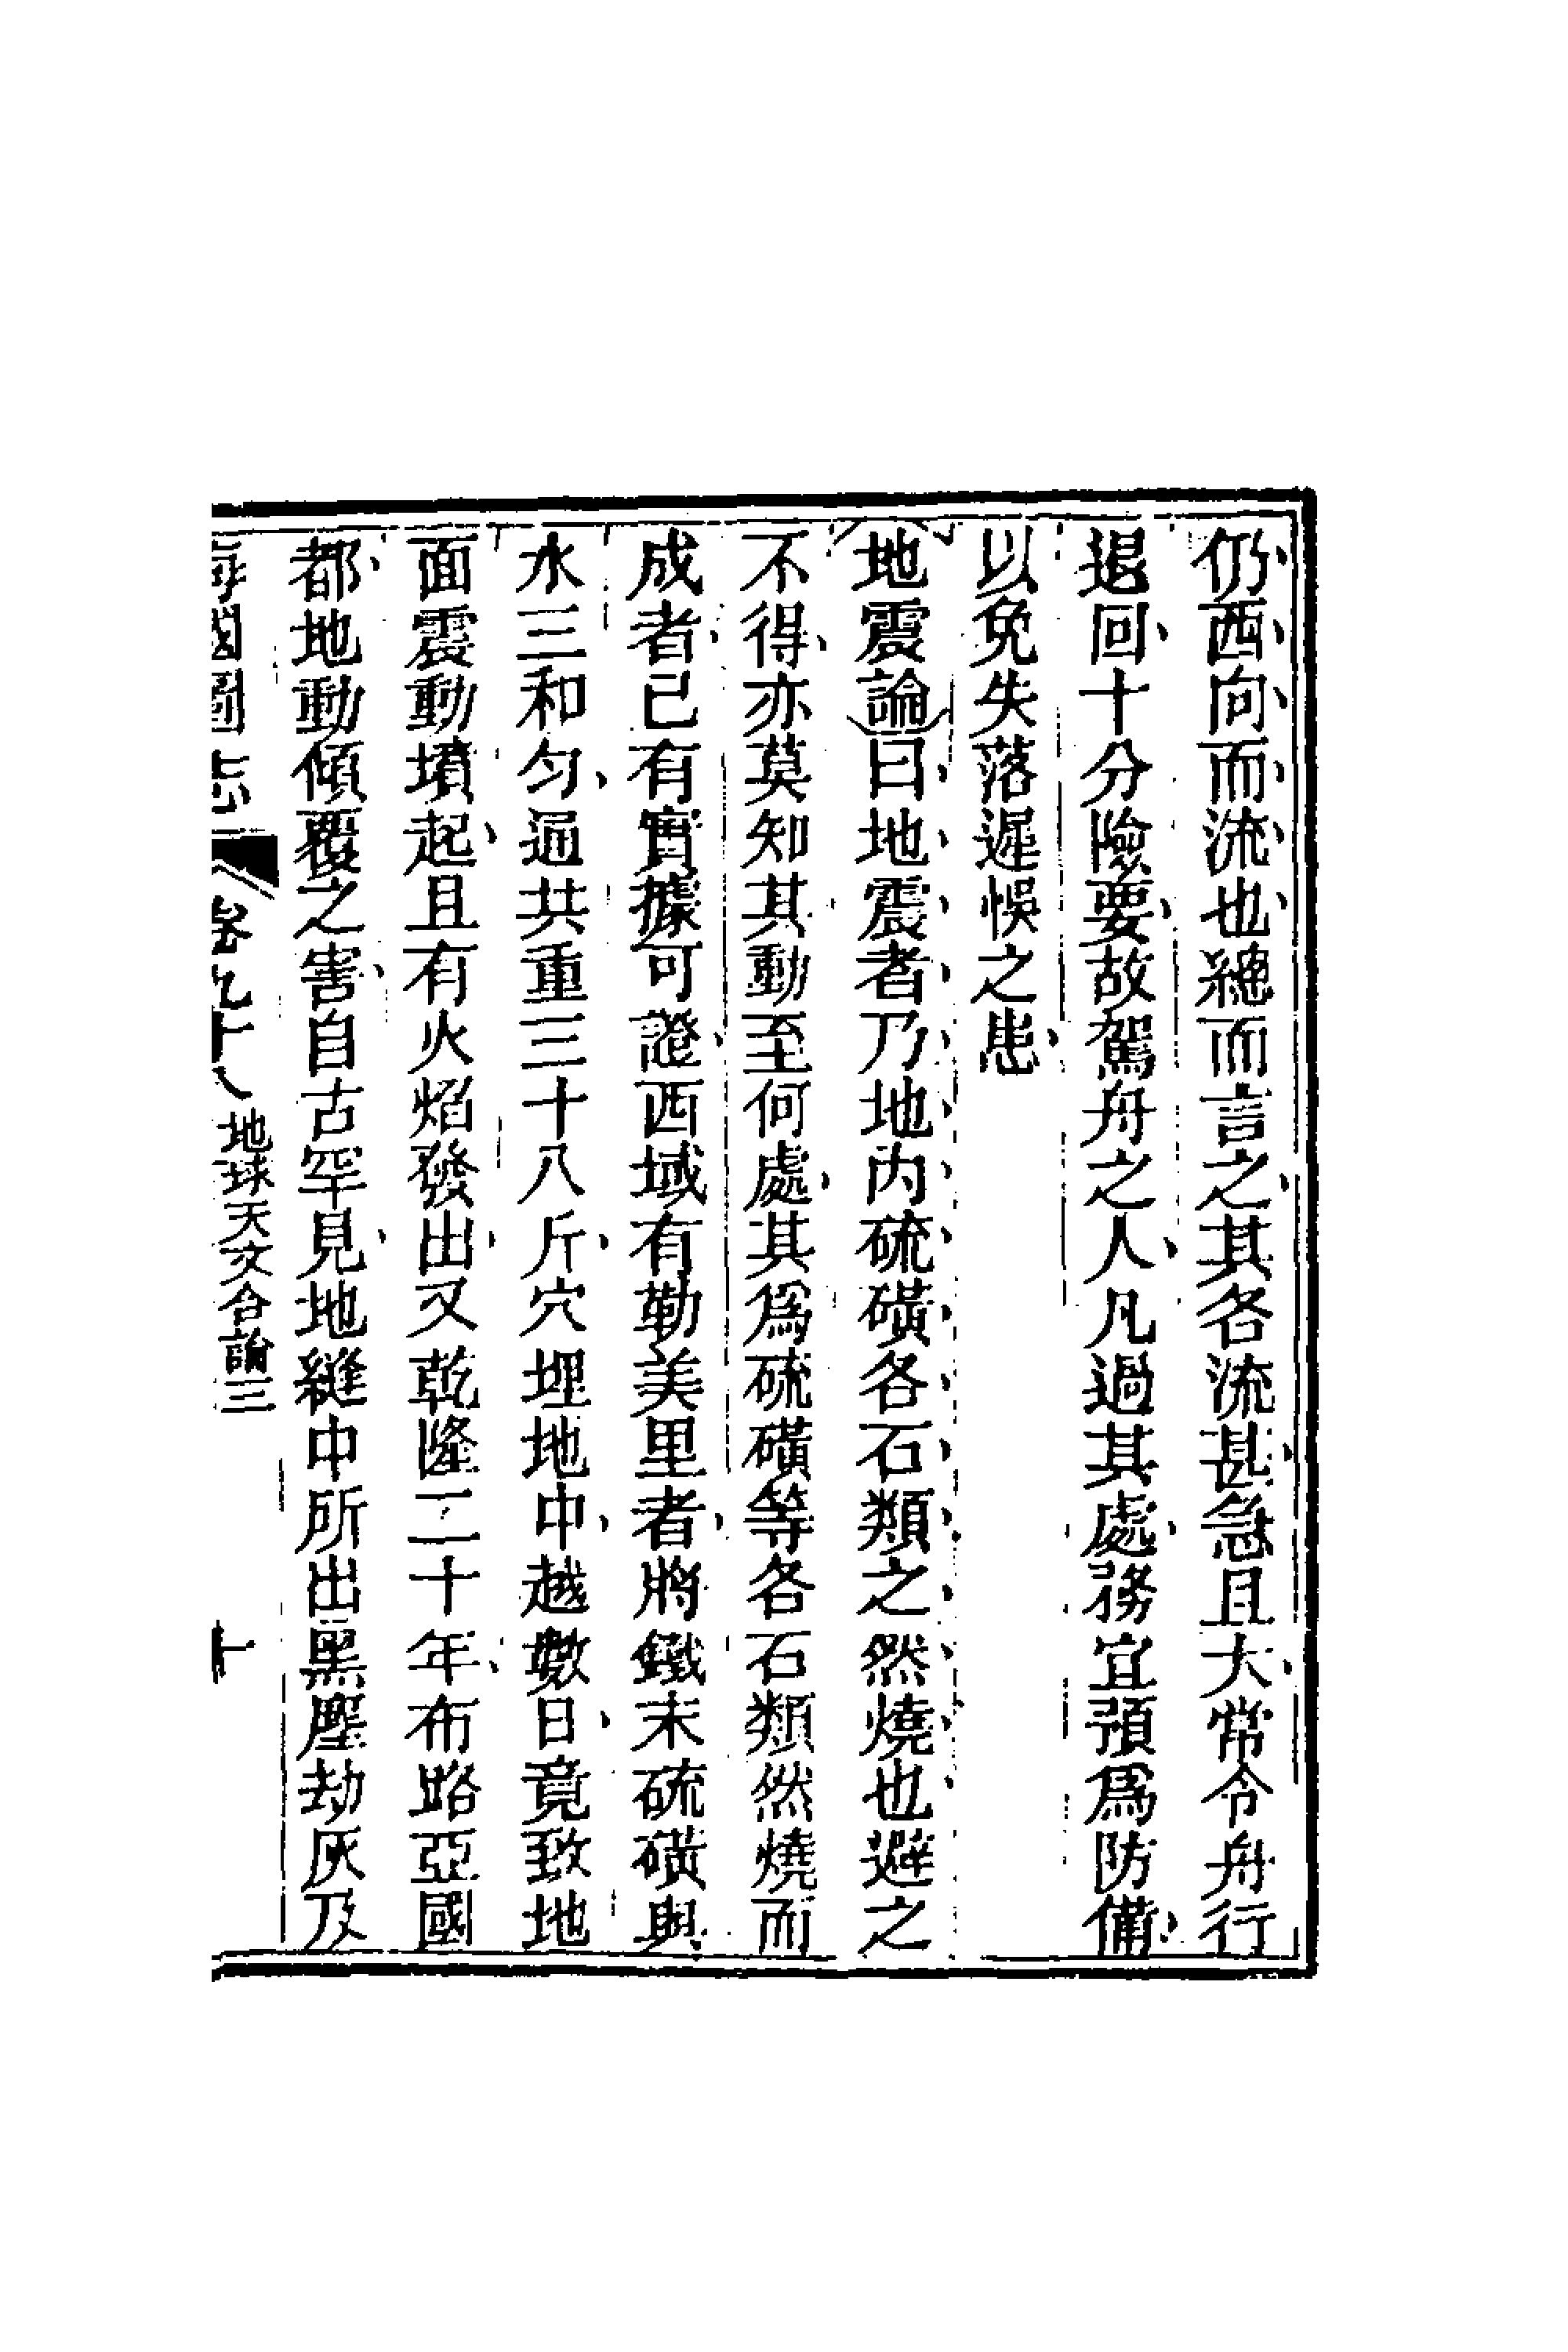 仍西向而流也總而言之其各流甚急且大常令舟行
退回十分險要故駕舟之人凡過其處務宜預爲防備
以免失落遲悞之患
地震論曰地震者乃地内硫磺各石類之然燒也避之
不得亦莫知其動至何處其爲硫磺等各石類然燒而
成者已有實據可證西域有勒美里者將鐵末硫磺與
水三和勻通共重三十八斤穴埋地中越數日竟致地
面震動墳起且有火焰發出又乾隆二十年布路亞國
都地動傾覆之害自古罕見地縫中所出黑塵劫灰及
海國圖志 卷九十八 地球天文合論三 十